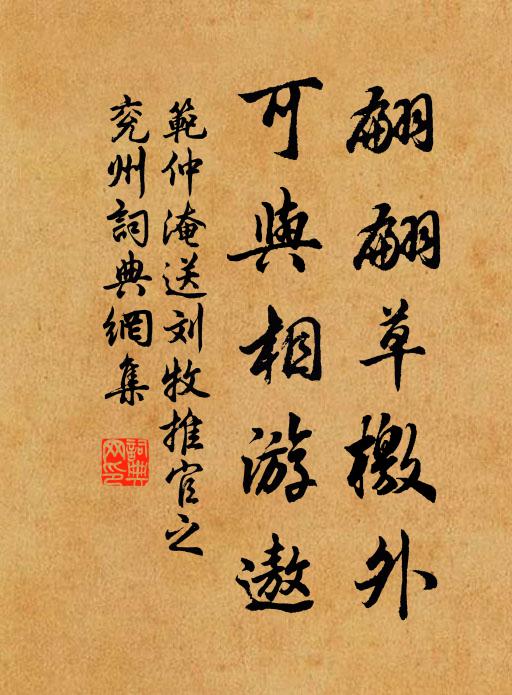 翩翩草檄外
可與相游遨
範仲淹送刘牧推官之
兖州詞典網集
詞典网印